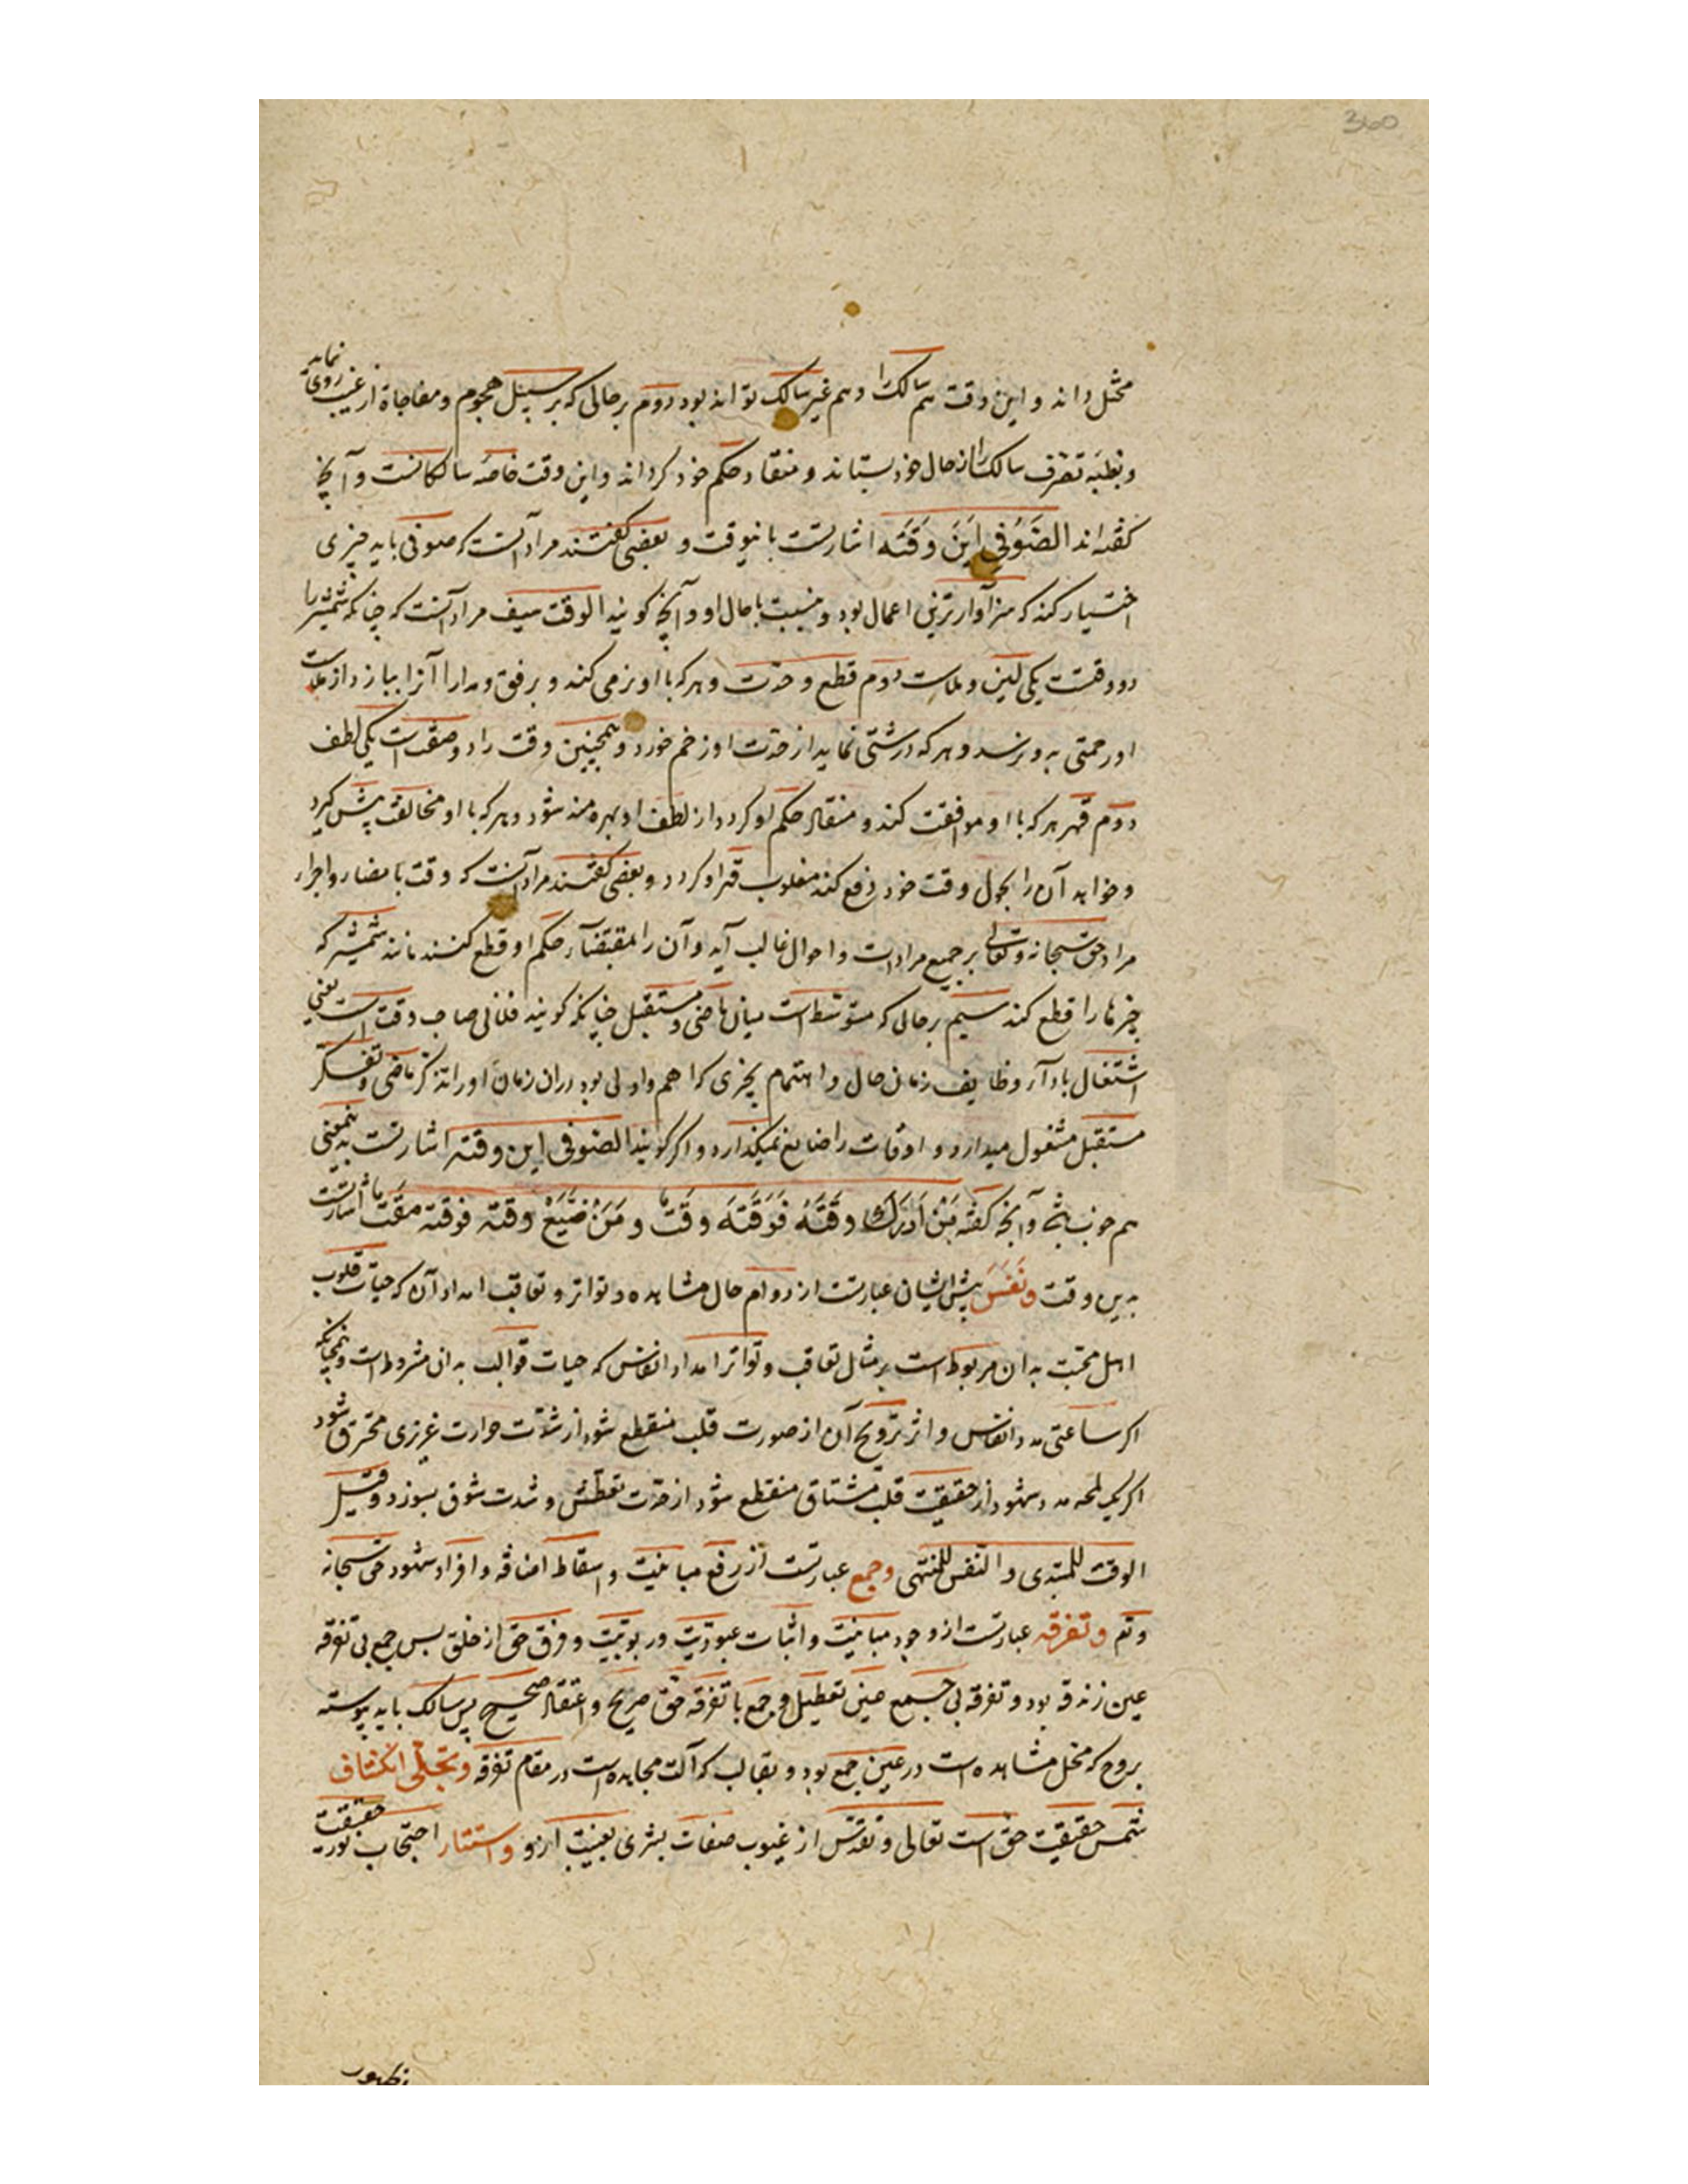 360
مختل داند و این وقت هم سالک را و هم غیر سالک تواند بود دوم بر حالی که بر سبیل هجوم و مفاجاة از غیب روی نماید
و بغلبه تصرف سالک را از حال خود بستاند و منقاد حکم خود گرداند و این وقت خاصه سالکانست و آنچه
گفته‌اند الصُوفی اِبنُ وَقتِه اشارتست باینوقت و بعضی گفتند مراد آنست که صوفی باید چیزی
اختیار کند که سزاوارترین اعمال بود و نسبت با حال او و آنچه گویند الوقت سیف مراد آنست که چنانکه شمشیر را
دو وقتست یکی لین و ملاست دوم قطع و حدت و هر که با او نرمی کند و برفق و مدارا آنرا بیازد از ملاست
او رحمتی بدو رسد و هر که درشتی نماید از حدت او زخم خورد و همچنین وقت را دو صفت است یکی لطف
دوم قهر هر که با او موافقت کند و منقاد حکم او گردد از لطف او بهره‌مند شود و هر که با او مخالفت پیش گیرد
و خواهد آن را بحول وقت خود دفع کند مغلوب قهر او گردد و بعضی گفتند مراد آنست که وقت بامضاء و اجراء
مراد حق سبحانه و تعالی بر جمیع مرادات و احوال غالب آید و آن را بمقتضاء حکم او قطع کنند مانند شمشیر که
چیزها را قطع کند سیم بر حالی که متوسط است میان ماضی و مستقبل چنانکه گویند فلانی صاحب وقت است یعنی
اشتغال باداء وظایف زمان حال و اهتمام بچیزی که اهم و اولی بود در آن زمان او را از تذکر ماضی و تفکر
مستقبل مشغول میدارد و اوقات را ضایع نمیگذارد و اگر گویند الصوفی ابن وقته اشارتست بهمین معنی
هم خوب باشد و آنچه گفته مَنْ اَدْرَکَ وقتَهُ فَوَقتُهَ وقتٌ و مَنْ ضَیَّعَ وقته فوقته مَقتٌ اشارتست
بدین وقت و نَفَسَ پیش ایشان عبارتست از دوام حال مشاهده و تواتر و تعاقب امداد آن که حیات قلوب
اهل محبت بدان مربوط است بر مثال تعاقب و تواتر امداد انفاس که حیات قوالب بدان مشروط است و همچنانکه
اگر ساعتی مدد انفاس و اثر ترویح آن از صورت قلب منقطع شود از شدّت حرارت غریزی محترق شود
اگر یک لمحه مدد شهود از حقیقت قلب مشتاق منقطع شود از حدّت تعطش و شدت شوق بسوزد و قیل
الوقت للمبتدی و النفس للمنتهی و جمع عبارتست از رفع مباینیت و اسقاط اضافه و افراد شهود حق سبحانه
و تع و تفرقه عبارتست از وجود مباینیت و اثبات عبودیّت و ربوبیّت و فرق حق از خلق پس جمع بی تفرقه
عین زندقه بود و تفرقه بی جمع عین تعطیل و جمع با تفرقه حق صریح و اعتقاد صحیح پس سالک باید پیوسته
بروح که محل مشاهده است در عین جمع بود و بقالب که آلت مجاهده است در مقام تفرقه و تجلّی انکشاف
شمس حقیقت حق است تعالی و تقدّس از غیوب صفات بشری بغیبت از او و استتار احتجاب نور حقیقت
بظهور